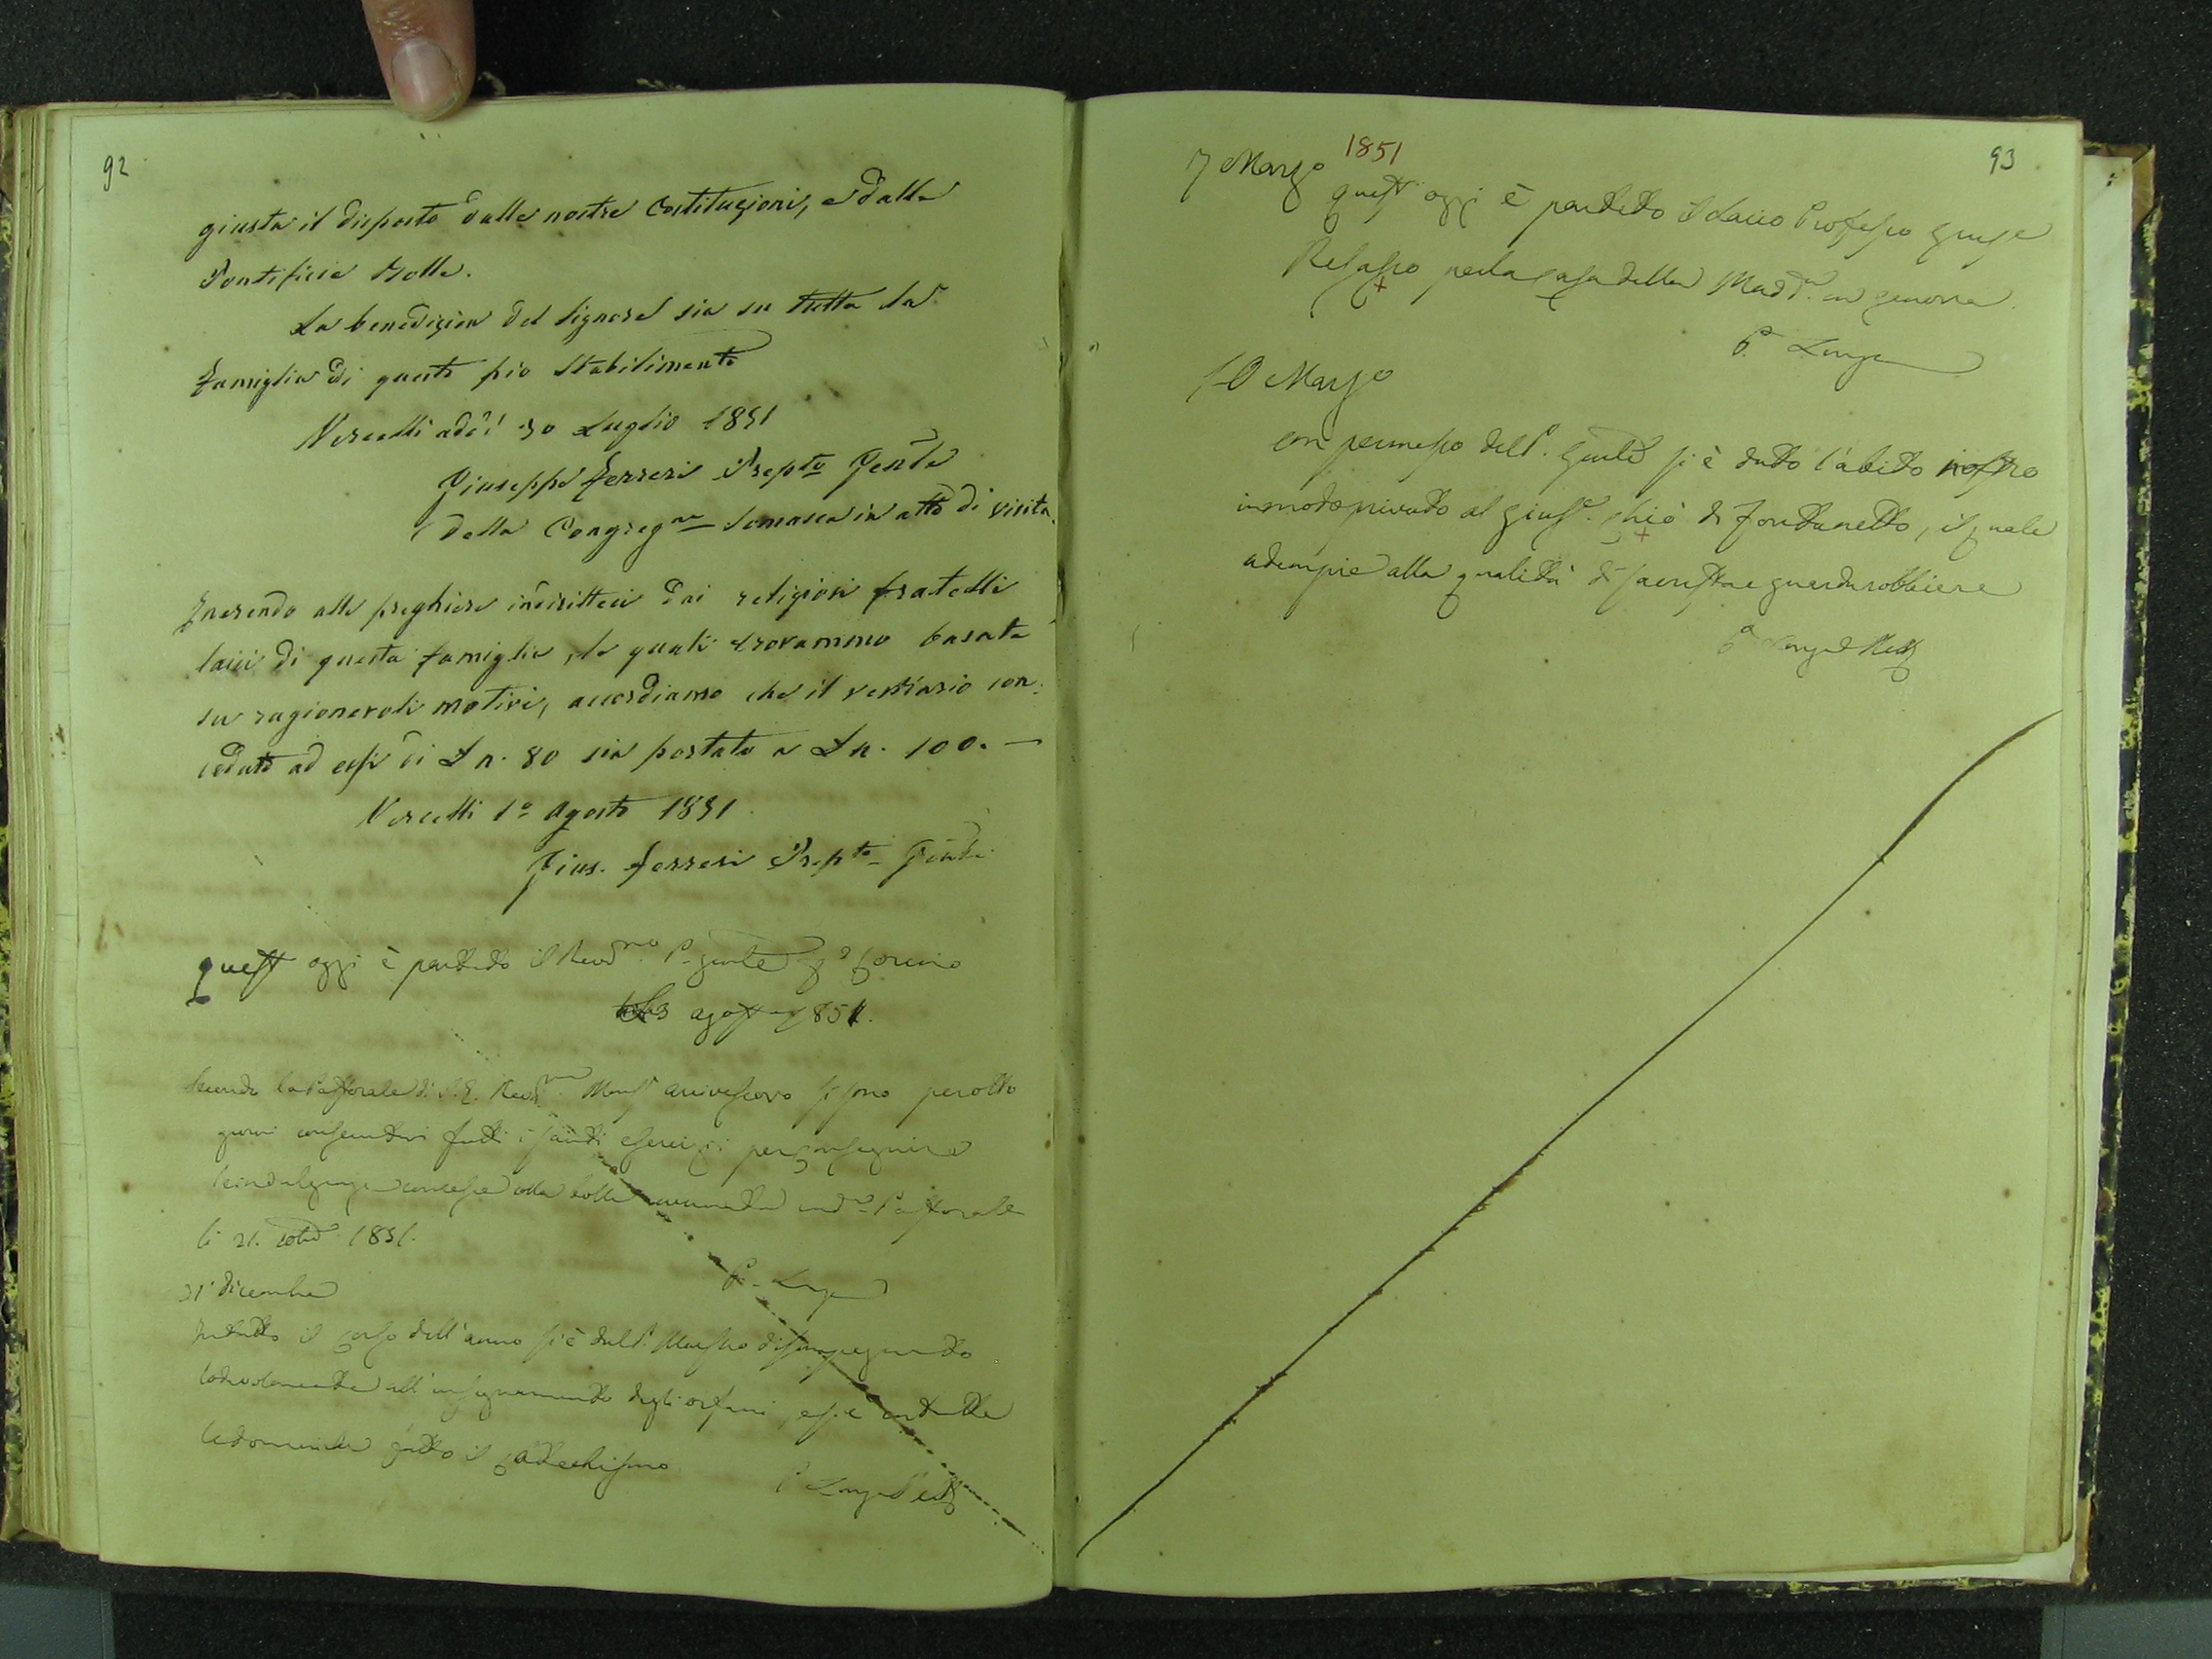 92
giusta il disposto dalle nostre Costituzioni, e dalla
Pontificia Bolla.
La benedizion del Signore sia su tutta la
famiglia di questo pio Stabilimento
Vercelli addì 30 Luglio 1851
Giuseppe Ferreri Prepto Genle
della Congregne Somasca in atto di visita.
Inerendo alle preghiere indiritteci dai religiosi fratelli
laici di questa famiglia, le quali trovammo basate
su ragionevoli motivi, accordiamo che il vestiario con:
ceduto ad essi di Ln. 80 sia portato a Ln. 100. —
Vercelli 1º Agosto 1851
Gius. Ferreri Prepto Genle
quest oggi è partito il Revdmo P. Genle
3 agosto 1851.
Secondo la Pastorale di S. E. Revdma Monsr arcivescovo si sono per otto
giorni consecutivi fatti i santi esercizi per conseguire
le indulgenze concesse colla bolla Pastorale
li 21. 1851.
P. Longa
31 dicembre
In tutto il corso dell'anno si è dal P. Maestro disimpegnato
lodevolmente all'insegnamento degli orfani, e si è in tutte
le domeniche fatto il catechismo
P Longa Rett
93
1851
7 Marzo
quest oggi è partito il laico Professo Giuse
per la casa della Madda in Genova
P. Longa
10 Marzo
con permesso del P. Genle si è dato l'abito nostro
in modo privato al Giuse. Ghiò di Fontanetto, il quale
adempie alla qualità di sacrista e guardarobbiere
P. Longa Rett